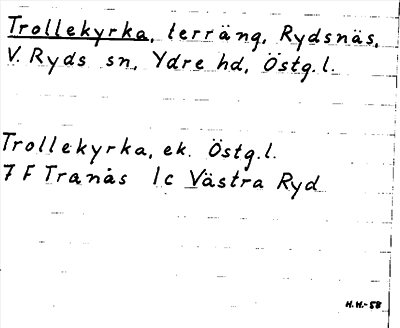 Trollekyrka, terräng, Rydsnäs,
V. Ryds sn, Ydre hd, Östg.l.
Trollekyrka, ek. Östg.l.
7 F Tranås 1c Västra Ryd
H.H.-58